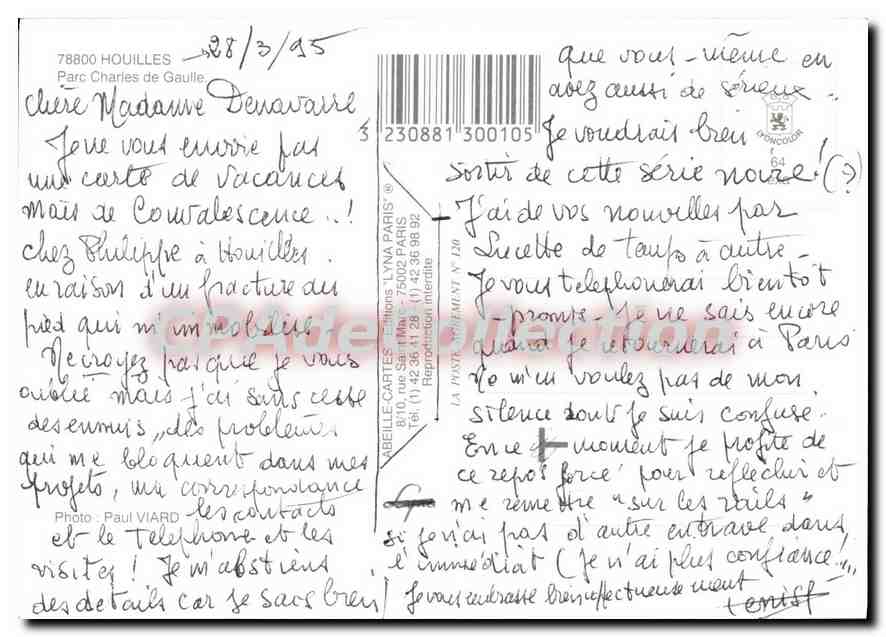 78800 HOUILLES
Parc Charles de Gaulle
28/3/95
Chère Madame Denavarre
Je ne vous envoie pas
une carte de vacances
mais de Convalescence..!
chez Philippe à Houilles.
en raison d'un fracture du
pied qui m'immobilise.
Ne croyez pas que je vous
oublie mais j'ai sans cesse
des ennuis, des problèmes
qui me bloquent dans mes
projets, ma correspondance
les contacts
Photo : Paul VIARD
et le telephone et les
visites! Je m'abstiens
des details car je sais bien
3 230881 300105
ABEILLE-CARTES - Editions "LYNA PARIS" ®
8/10, rue Saint Marc - 75002 PARIS
Tél. (1) 42 36 41 28 - (1) 42 36 98 92
Reproduction interdite
LA POSTE AGREMENT N° 120
LYONCOLOR
64
que vous-même en
avez aussi de sérieux.
Je voudrais bien
sortir de cette série noire! (?)
J'ai de vos nouvelles par
Lucette de temps à autre.
Je vous telephonerai bientôt
- promis - Je ne sais encore
quand je retournerai à Paris
Ne m'en voulez pas de mon
silence dont je suis confuse.
En ce moment je profite de
ce repos forcé pour réflechir et
me remettre "sur les rails"
si je n'ai pas d'autre entrave dans
l'immédiat (Je n'ai plus confiance!...
Je vous embrasse bien affectueusement
CPAdeCollection